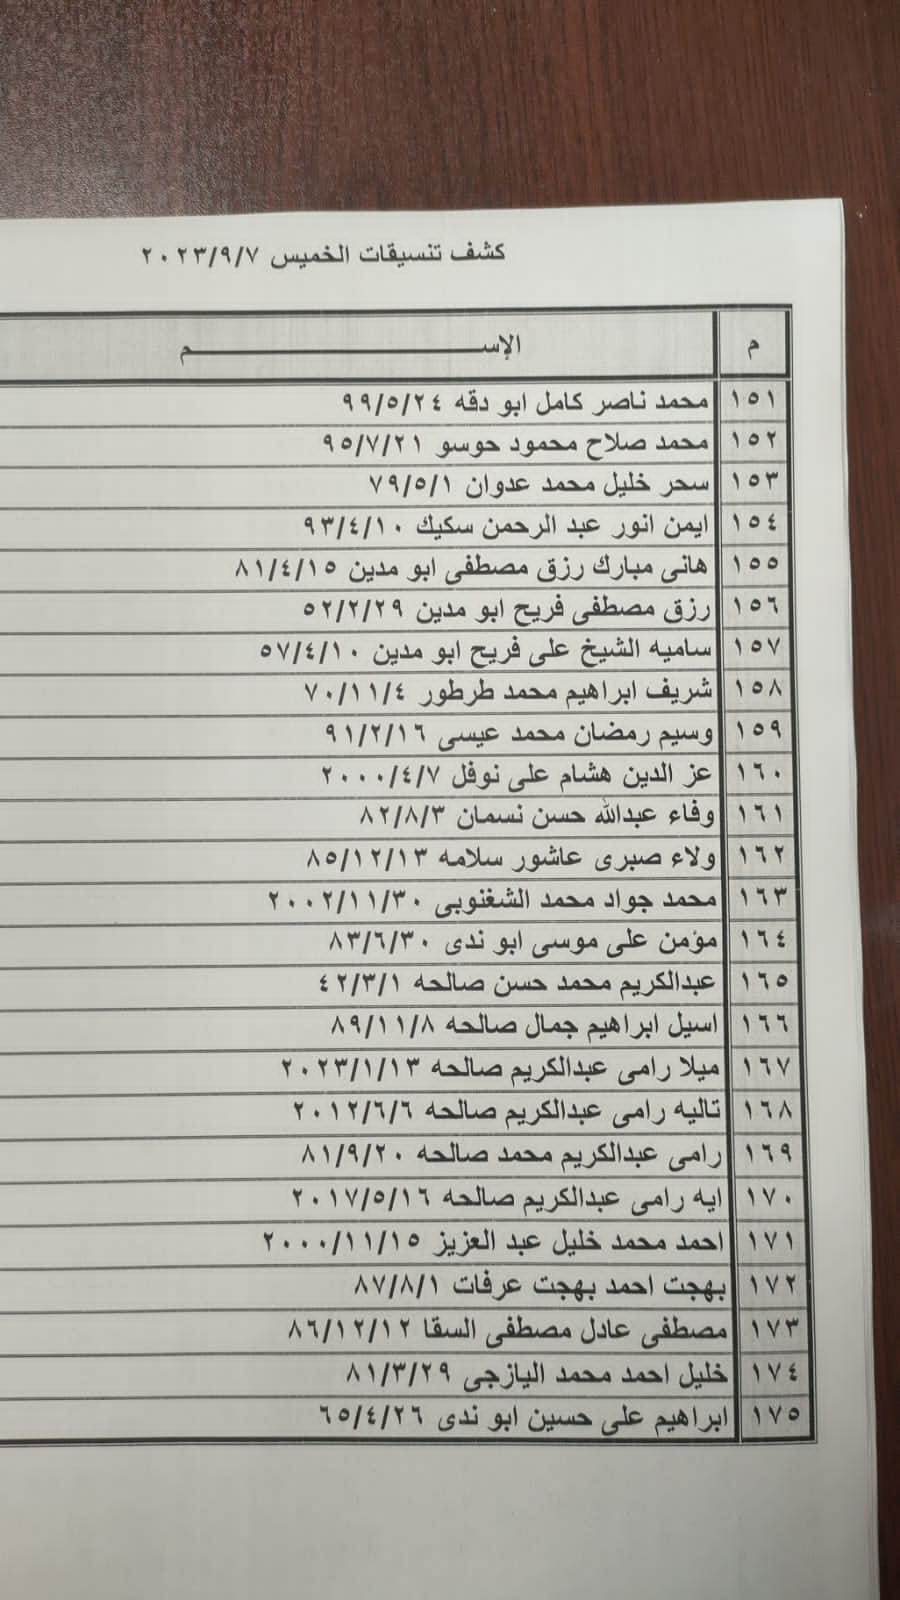 كشف تنسيقات الخميس ٢٠٢٣/٩/٧
م الإســـــــم
١٥١ محمد ناصر كامل ابو دقه ٩٩/٥/٢٤
١٥٢ محمد صلاح محمود حوسو ٩٥/٧/٢١
١٥٣ سحر خليل محمد عدوان ٧٩/٥/١
١٥٤ ايمن انور عبد الرحمن سكيك ٩٣/٤/١٠
١٥٥ هانى مبارك رزق مصطفى ابو مدين ٨١/٤/١٥
١٥٦ رزق مصطفى فريح ابو مدين ٥٢/٢/٢٩
١٥٧ ساميه الشيخ على فريح ابو مدين ٥٧/٤/١٠
١٥٨ شريف ابراهيم محمد طرطور ٧٠/١١/٤
١٥٩ وسيم رمضان محمد عيسى ٩١/٢/١٦
١٦٠ عز الدين هشام على نوفل ٢٠٠٠/٤/٧
١٦١ وفاء عبدالله حسن نسمان ٨٢/٨/٣
١٦٢ ولاء صبرى عاشور سلامه ٨٥/١٢/١٣
١٦٣ محمد جواد محمد الشغنوبى ٢٠٠٢/١١/٣٠
١٦٤ مؤمن على موسى ابو ندى ٨٣/٦/٣٠
١٦٥ عبدالكريم محمد حسن صالحه ٤٢/٣/١
١٦٦ اسيل ابراهيم جمال صالحه ٨٩/١١/٨
١٦٧ ميلا رامى عبدالكريم صالحه ٢٠٢٣/١/١٣
١٦٨ تاليه رامى عبدالكريم صالحه ٢٠١٢/٦/٦
١٦٩ رامى عبدالكريم محمد صالحه ٨١/٩/٢٠
١٧٠ ايه رامى عبدالكريم صالحه ٢٠١٧/٥/١٦
١٧١ احمد محمد خليل عبد العزيز ٢٠٠٠/١١/١٥
١٧٢ بهجت احمد بهجت عرفات ٨٧/٨/١
١٧٣ مصطفى عادل مصطفى السقا ٨٦/١٢/١٢
١٧٤ خليل احمد محمد اليازجى ٨١/٣/٢٩
١٧٥ ابراهيم على حسين ابو ندى ٦٥/٤/٢٦